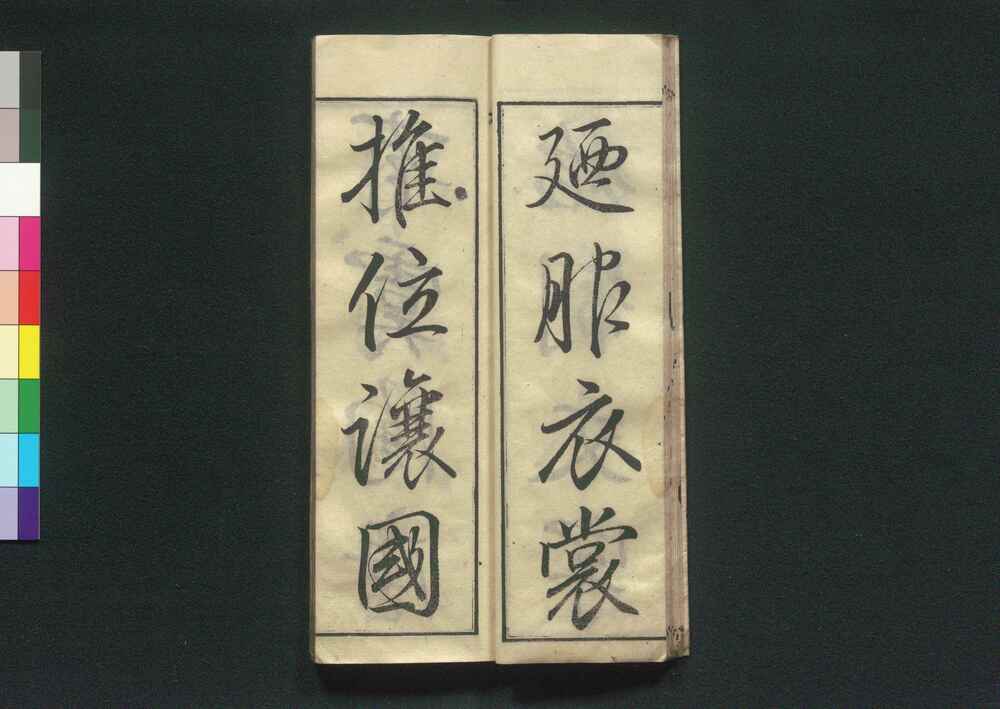 廼服衣裳
推位讓國